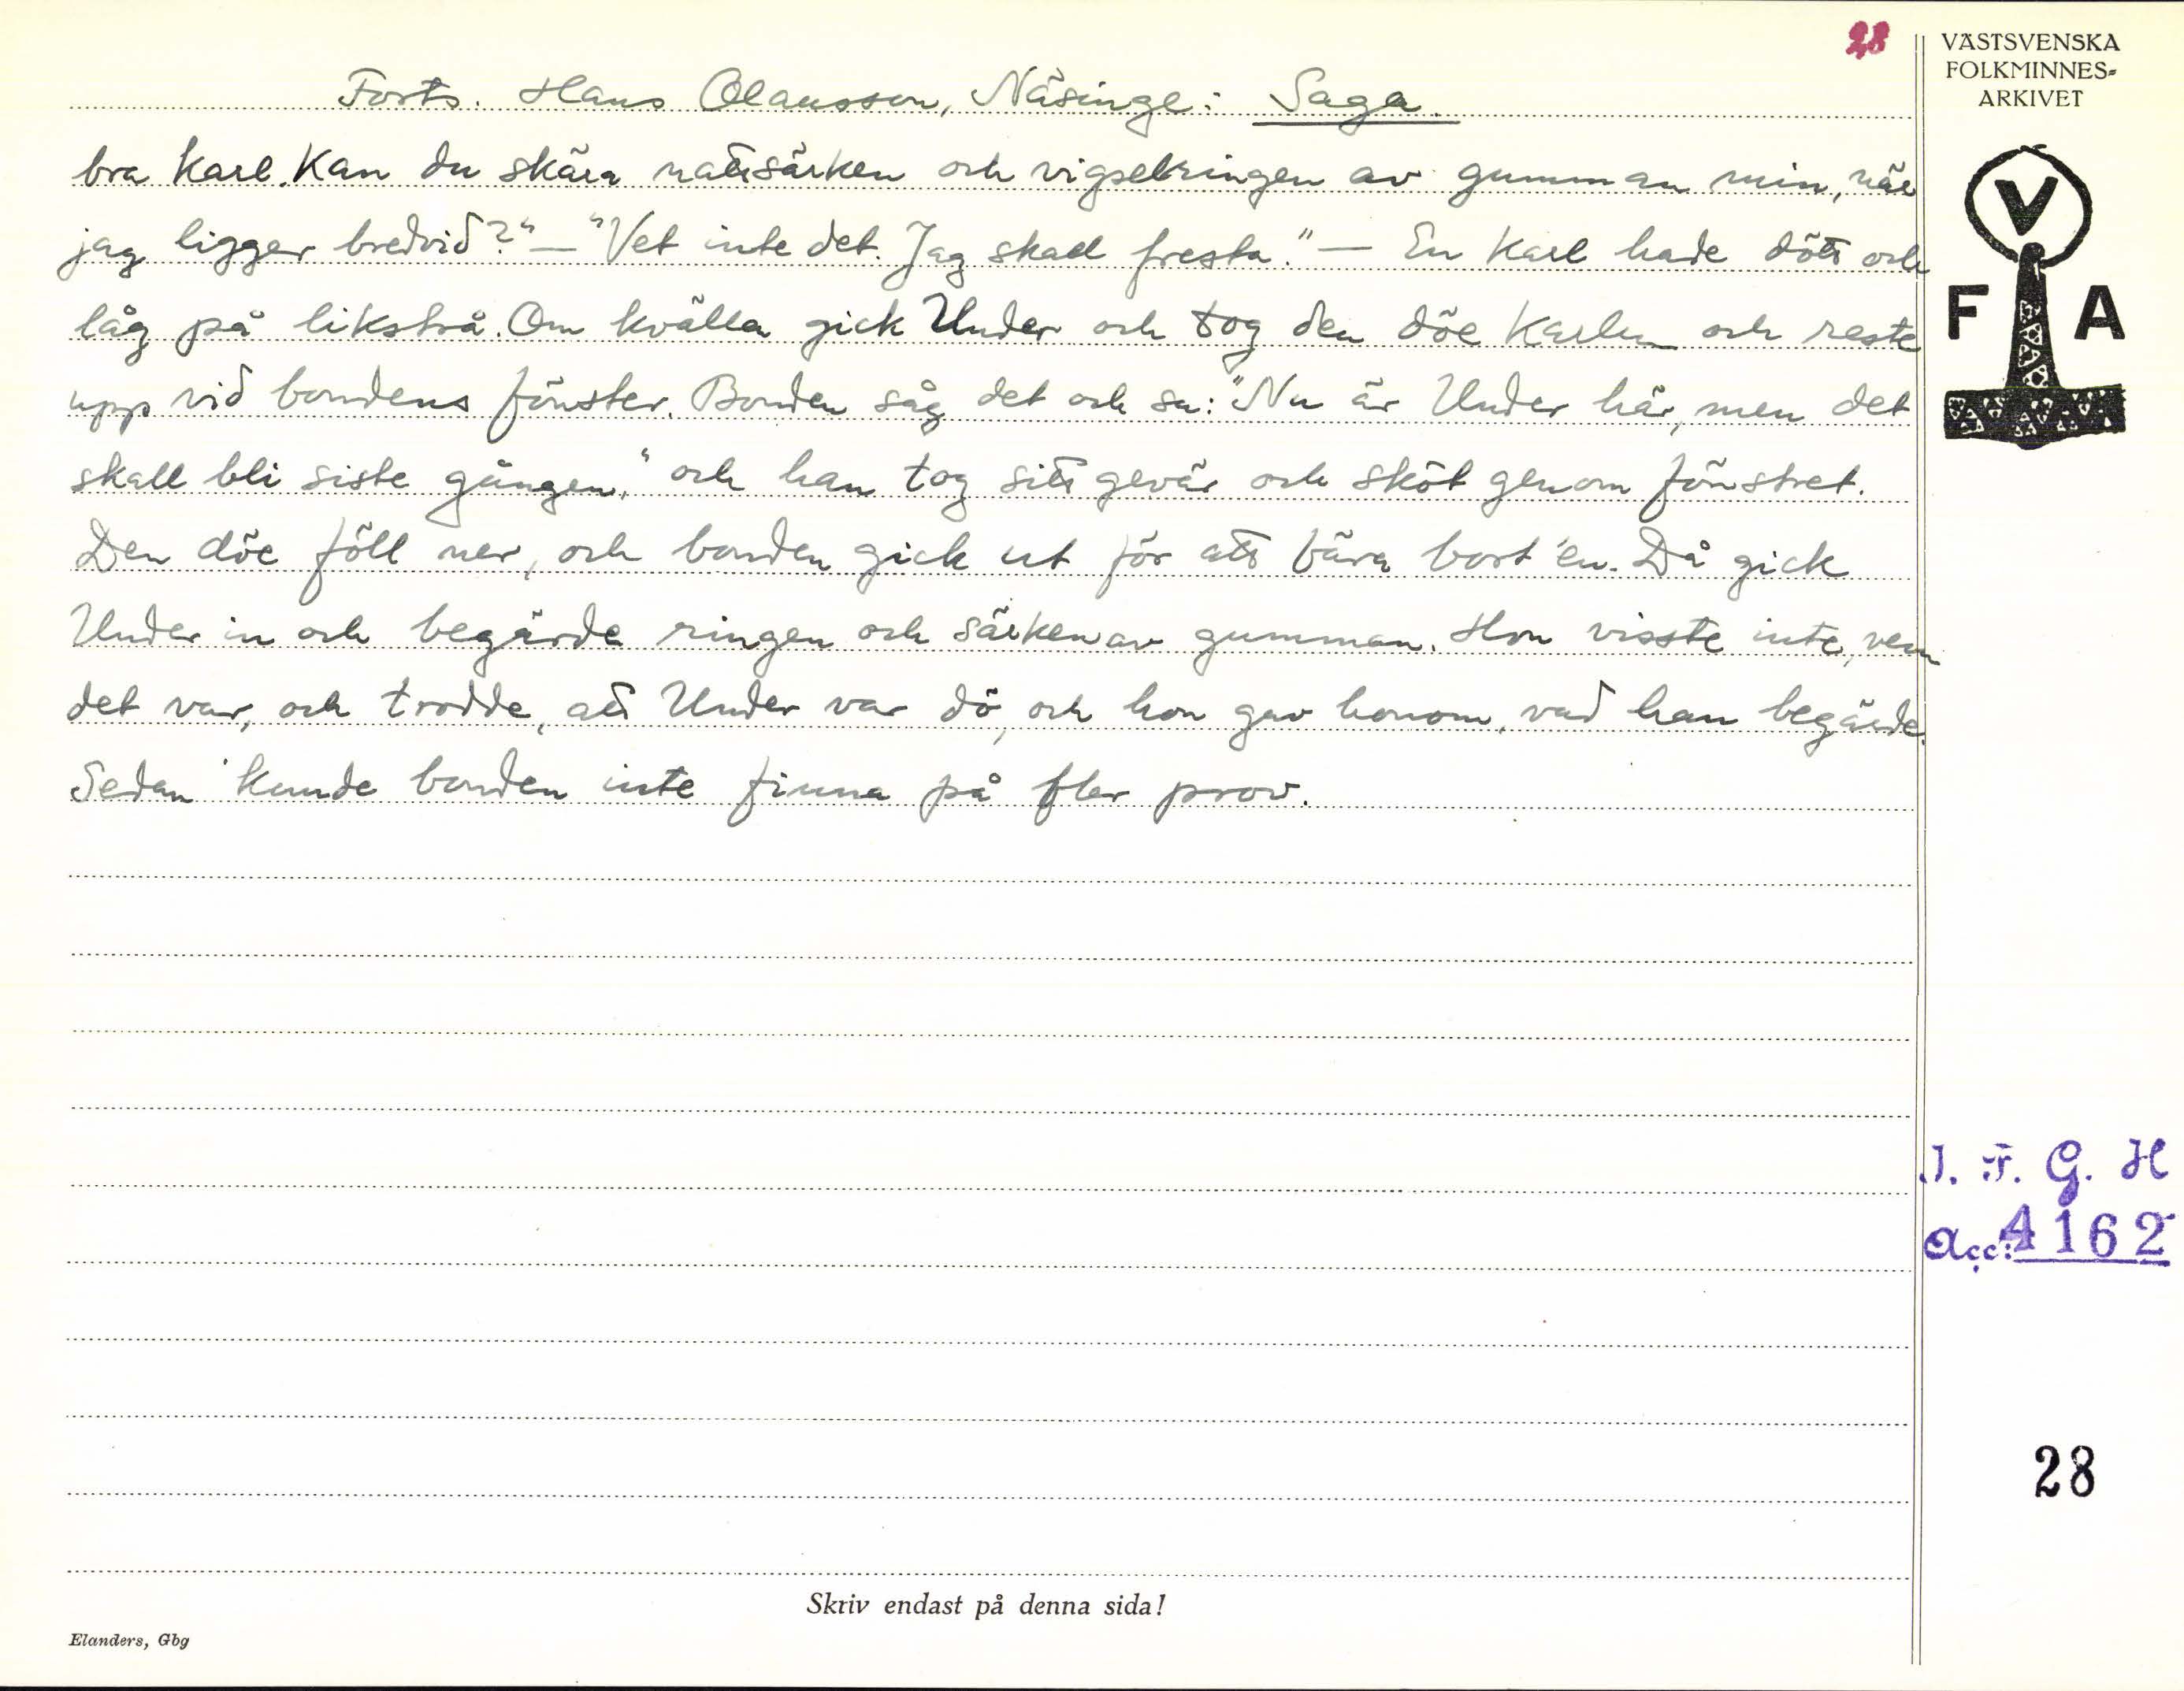 28
VÄSTSVENSKA
FOLKMINNES=
ARKIVET
Forts. Hans Olausson, Näsinge: Saga.
bra karl. Kan du skära nattsärken och vigselringen av gumman min, när
jag ligger bredvid?" — "Vet inte det. Jag skall fresta." — En karl hade dött och
låg på likstrå. Om kvälla gick Under och tog den döe karlen och reste
upp vid bondens fönster. Bonden såg det och sa: "Nu är Under här, men det
skall bli siste gången," och han tog sitt gevär och sköt genom fönstret.
Den döe föll ner, och bonden gick ut för att bära bort 'en. Då gick
Under in och begärde ringen och särken av gumman. Hon visste inte, vem
det var, och trodde, att Under var dö, och hon gav honom, vad han begärde.
Sedan kunde bonden inte finna på fler prov.
V
F A
I. F. G. H
Acc: 4162
28
Skriv endast på denna sida!
Elanders, Gbg